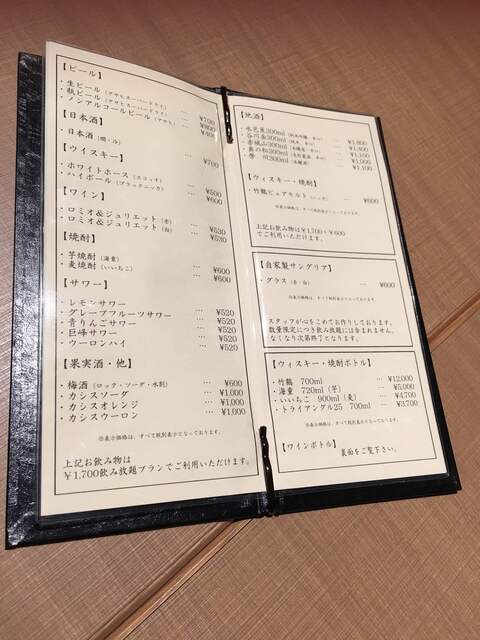 【ビール】
・生ビール（アサヒスーパードライ） … ¥700
・瓶ビール（アサヒスーパードライ） … ¥800
・ノンアルコールビール（アサヒ） … ¥400
【日本酒】
・日本酒（燗・冷） … ¥700
【ウイスキー】
・ホワイトホース（スコッチ） … ¥500
・ハイボール（ブラックニッカ） … ¥600
【ワイン】
・ロミオ＆ジュリエット（赤） … ¥530
・ロミオ＆ジュリエット（白） … ¥530
【焼酎】
・芋焼酎（海童） … ¥600
・麦焼酎（いいちこ） … ¥600
【サワー】
・レモンサワー … ¥520
・グレープフルーツサワー … ¥520
・青りんごサワー … ¥520
・巨峰サワー … ¥520
・ウーロンハイ … ¥520
【果実酒・他】
・梅酒（ロック・ソーダ・水割） … ¥600
・カシスソーダ … ¥1,000
・カシスオレンジ … ¥1,000
・カシスウーロン … ¥1,000
※表示価格は、すべて税別表示となっております。
上記お飲み物は
¥1,700飲み放題プランでご利用いただけます。
【地酒】
・水芭蕉300ml … ¥1,800
・谷川岳300ml … ¥1,400
・赤城山300ml … ¥1,100
・300ml … ¥1,000
・誉 川300ml … ¥1,100
【ウィスキー・焼酎】
・竹鶴ピュアモルト（ニッカ） … ¥600
※表示価格は、すべて税別表示となっております。
上記お飲み物は¥1,700+¥600
でご利用いただけます。
【自家製サングリア】
・グラス（赤・白） … ¥600
※表示価格は、すべて税別表示となっております。
スタッフが心をこめてお作りしております。
数量限定につき飲み放題には含まれません。
なくなり次第終了となります。
【ウィスキー・焼酎ボトル】
・竹鶴 700ml … ¥12,000
・海童 720ml（芋） … ¥5,000
・いいちこ 900ml（麦） … ¥4,700
・トライアングル25 700ml … ¥3,700
※表示価格は、すべて税別表示となっております。
【ワインボトル】 裏面をご覧下さい。